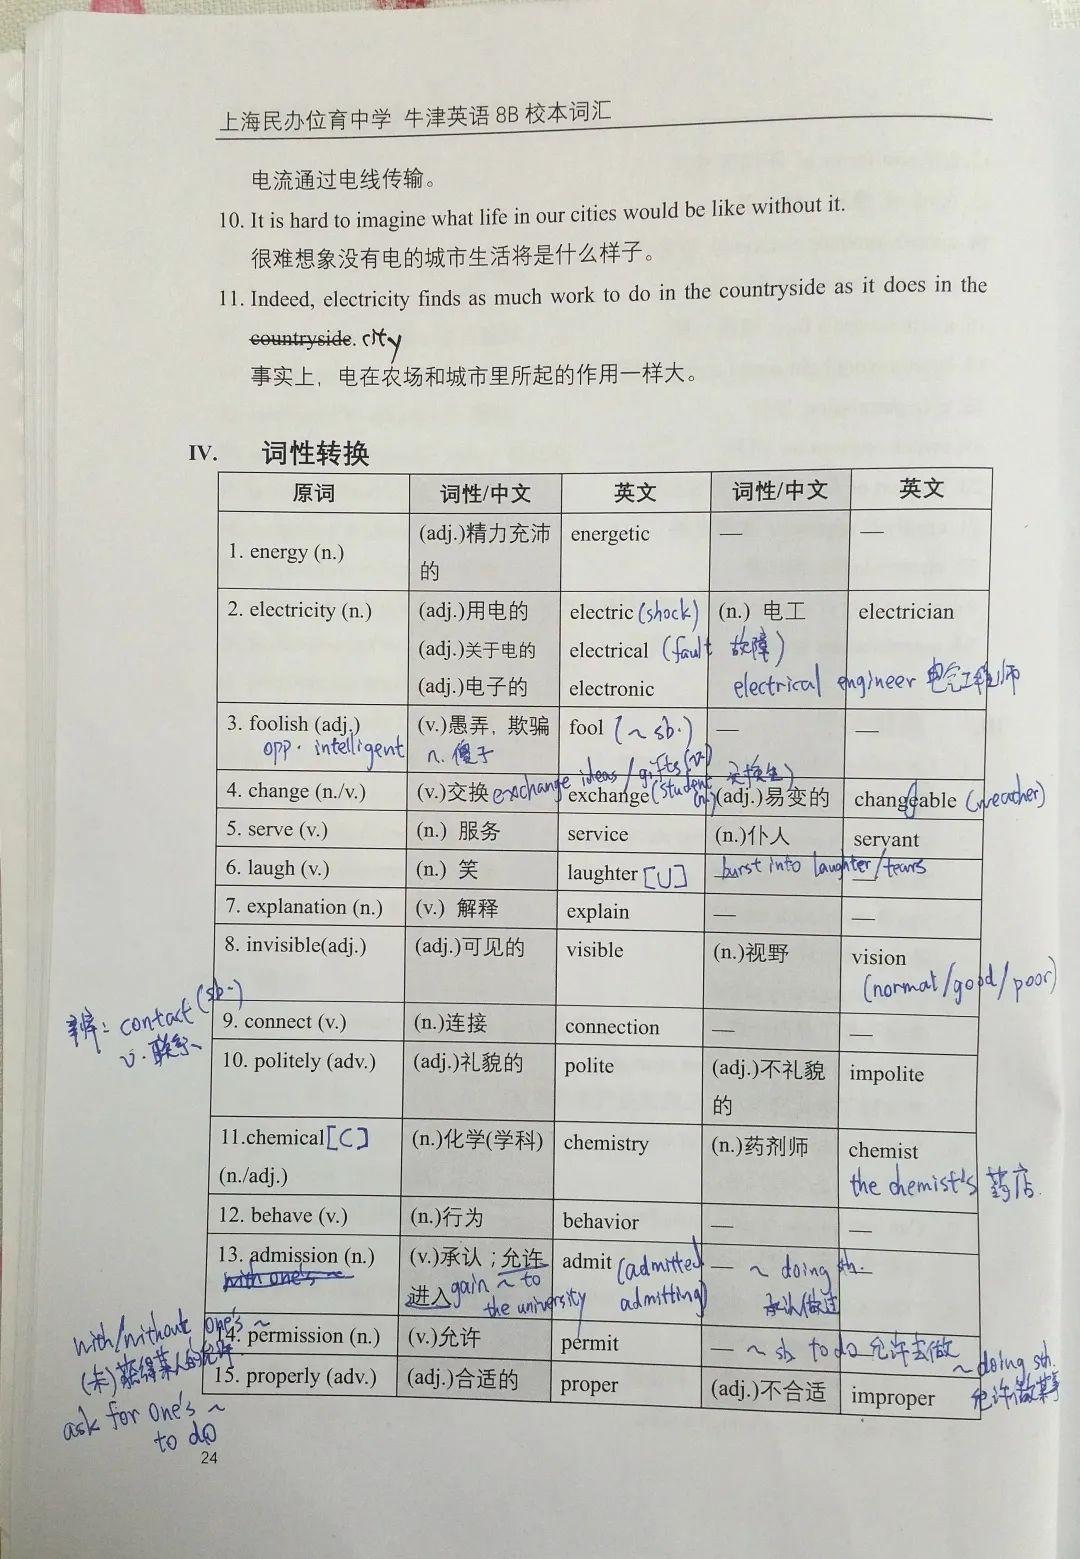 上海民办位育中学 牛津英语 8B 校本词汇
电流通过电线传输。
10. It is hard to imagine what life in our cities would be like without it.
很难想象没有电的城市生活将是什么样子。
11. Indeed, electricity finds as much work to do in the countryside as it does in the
countryside. city
事实上，电在农场和城市里所起的作用一样大。
IV. 词性转换
原词 词性/中文 英文 词性/中文 英文
1. energy (n.) (adj.)精力充沛的 energetic — —
2. electricity (n.) (adj.)用电的 electric (shock) (n.) 电工 electrician
(adj.)关于电的 electrical (fault 故障)
(adj.)电子的 electronic electrical engineer 电气工程师
3. foolish (adj.) (v.)愚弄，欺骗 fool (~ sb.) — —
opp. intelligent n. 傻子
exchange ideas/gifts (v.)
4. change (n./v.) (v.)交换 exchange (student 交换生) (n.) (adj.)易变的 changeable (weather)
5. serve (v.) (n.) 服务 service (n.)仆人 servant
6. laugh (v.) (n.) 笑 laughter [U] burst into laughter/tears —
7. explanation (n.) (v.) 解释 explain — —
8. invisible(adj.) (adj.)可见的 visible (n.)视野 vision
(normal/good/poor)
辨: contact (sb.)
v. 联系
9. connect (v.) (n.)连接 connection — —
10. politely (adv.) (adj.)礼貌的 polite (adj.)不礼貌的 impolite
11.chemical [C] (n./adj.) (n.)化学(学科) chemistry (n.)药剂师 chemist
the chemist's 药店.
12. behave (v.) (n.)行为 behavior — —
13. admission (n.) (v.)承认；允许进入 admit (admitted — ~ doing sth. —
with one's ~ gain ~ to the university admitting) 承认做过
with/without one's ~
(未)获得某人的允许
14. permission (n.) (v.)允许 permit — ~ sb to do 允许去做
~ doing sth.
允许做某事
15. properly (adv.) (adj.)合适的 proper (adj.)不合适 improper
ask for one's ~
to do
24